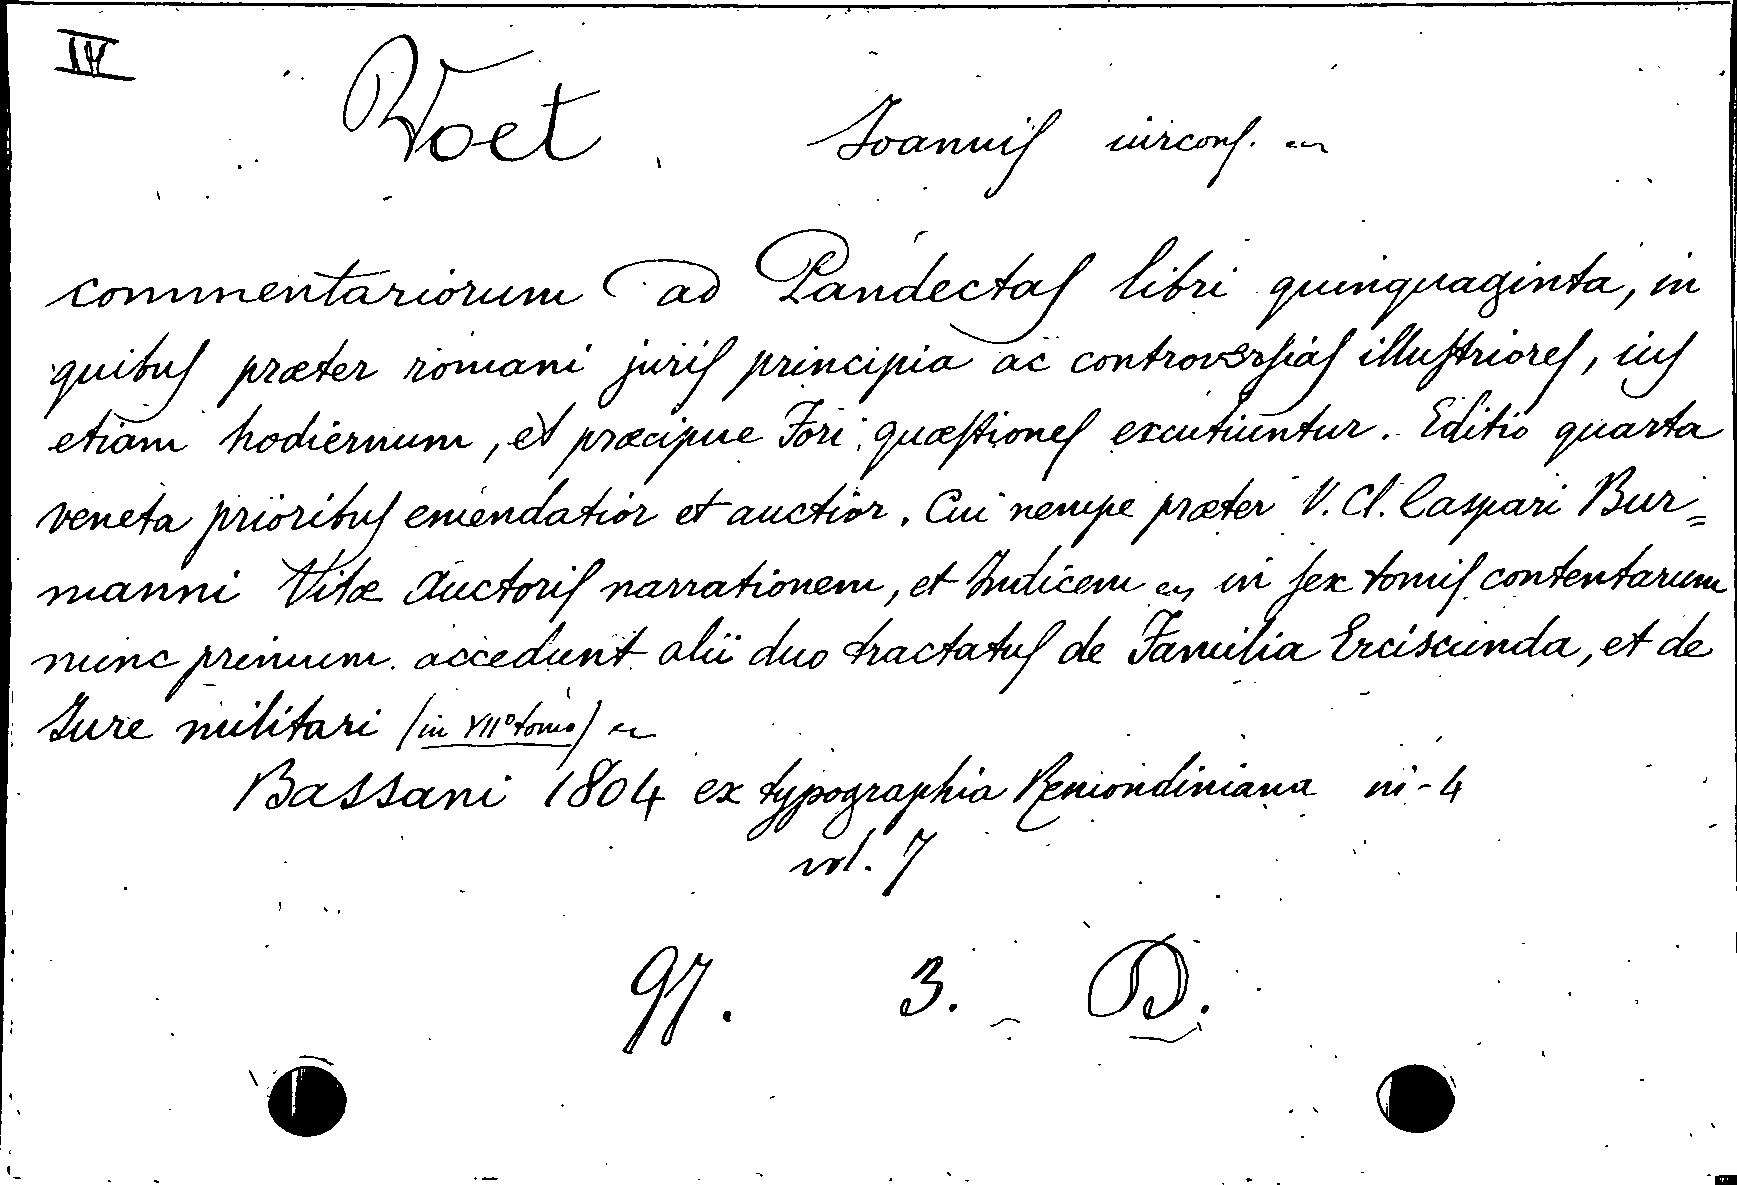 IV
Voet Joannis iurcons.
commentariorum ad Pandectas libri quinquaginta, in
quibus præter romani juris principia ac controversias illustriores, ius
etiam hodiernum, et præcipue Fori quæstiones excutiuntur. Editio quarta
veneta prioribus emendatior et auctior. Cui nempe præter V. Cl. Caspari Bur=
manni Vitæ Auctoris narrationem, et Indicem in sex tomis contentarum
nunc primum accedunt alii duo tractatus de Familia Erciscunda, et de
Jure militari (in VIIº tomo)
Bassani 1804 ex typographia Remondiniana in-4
vol. 7
97. 3. D.